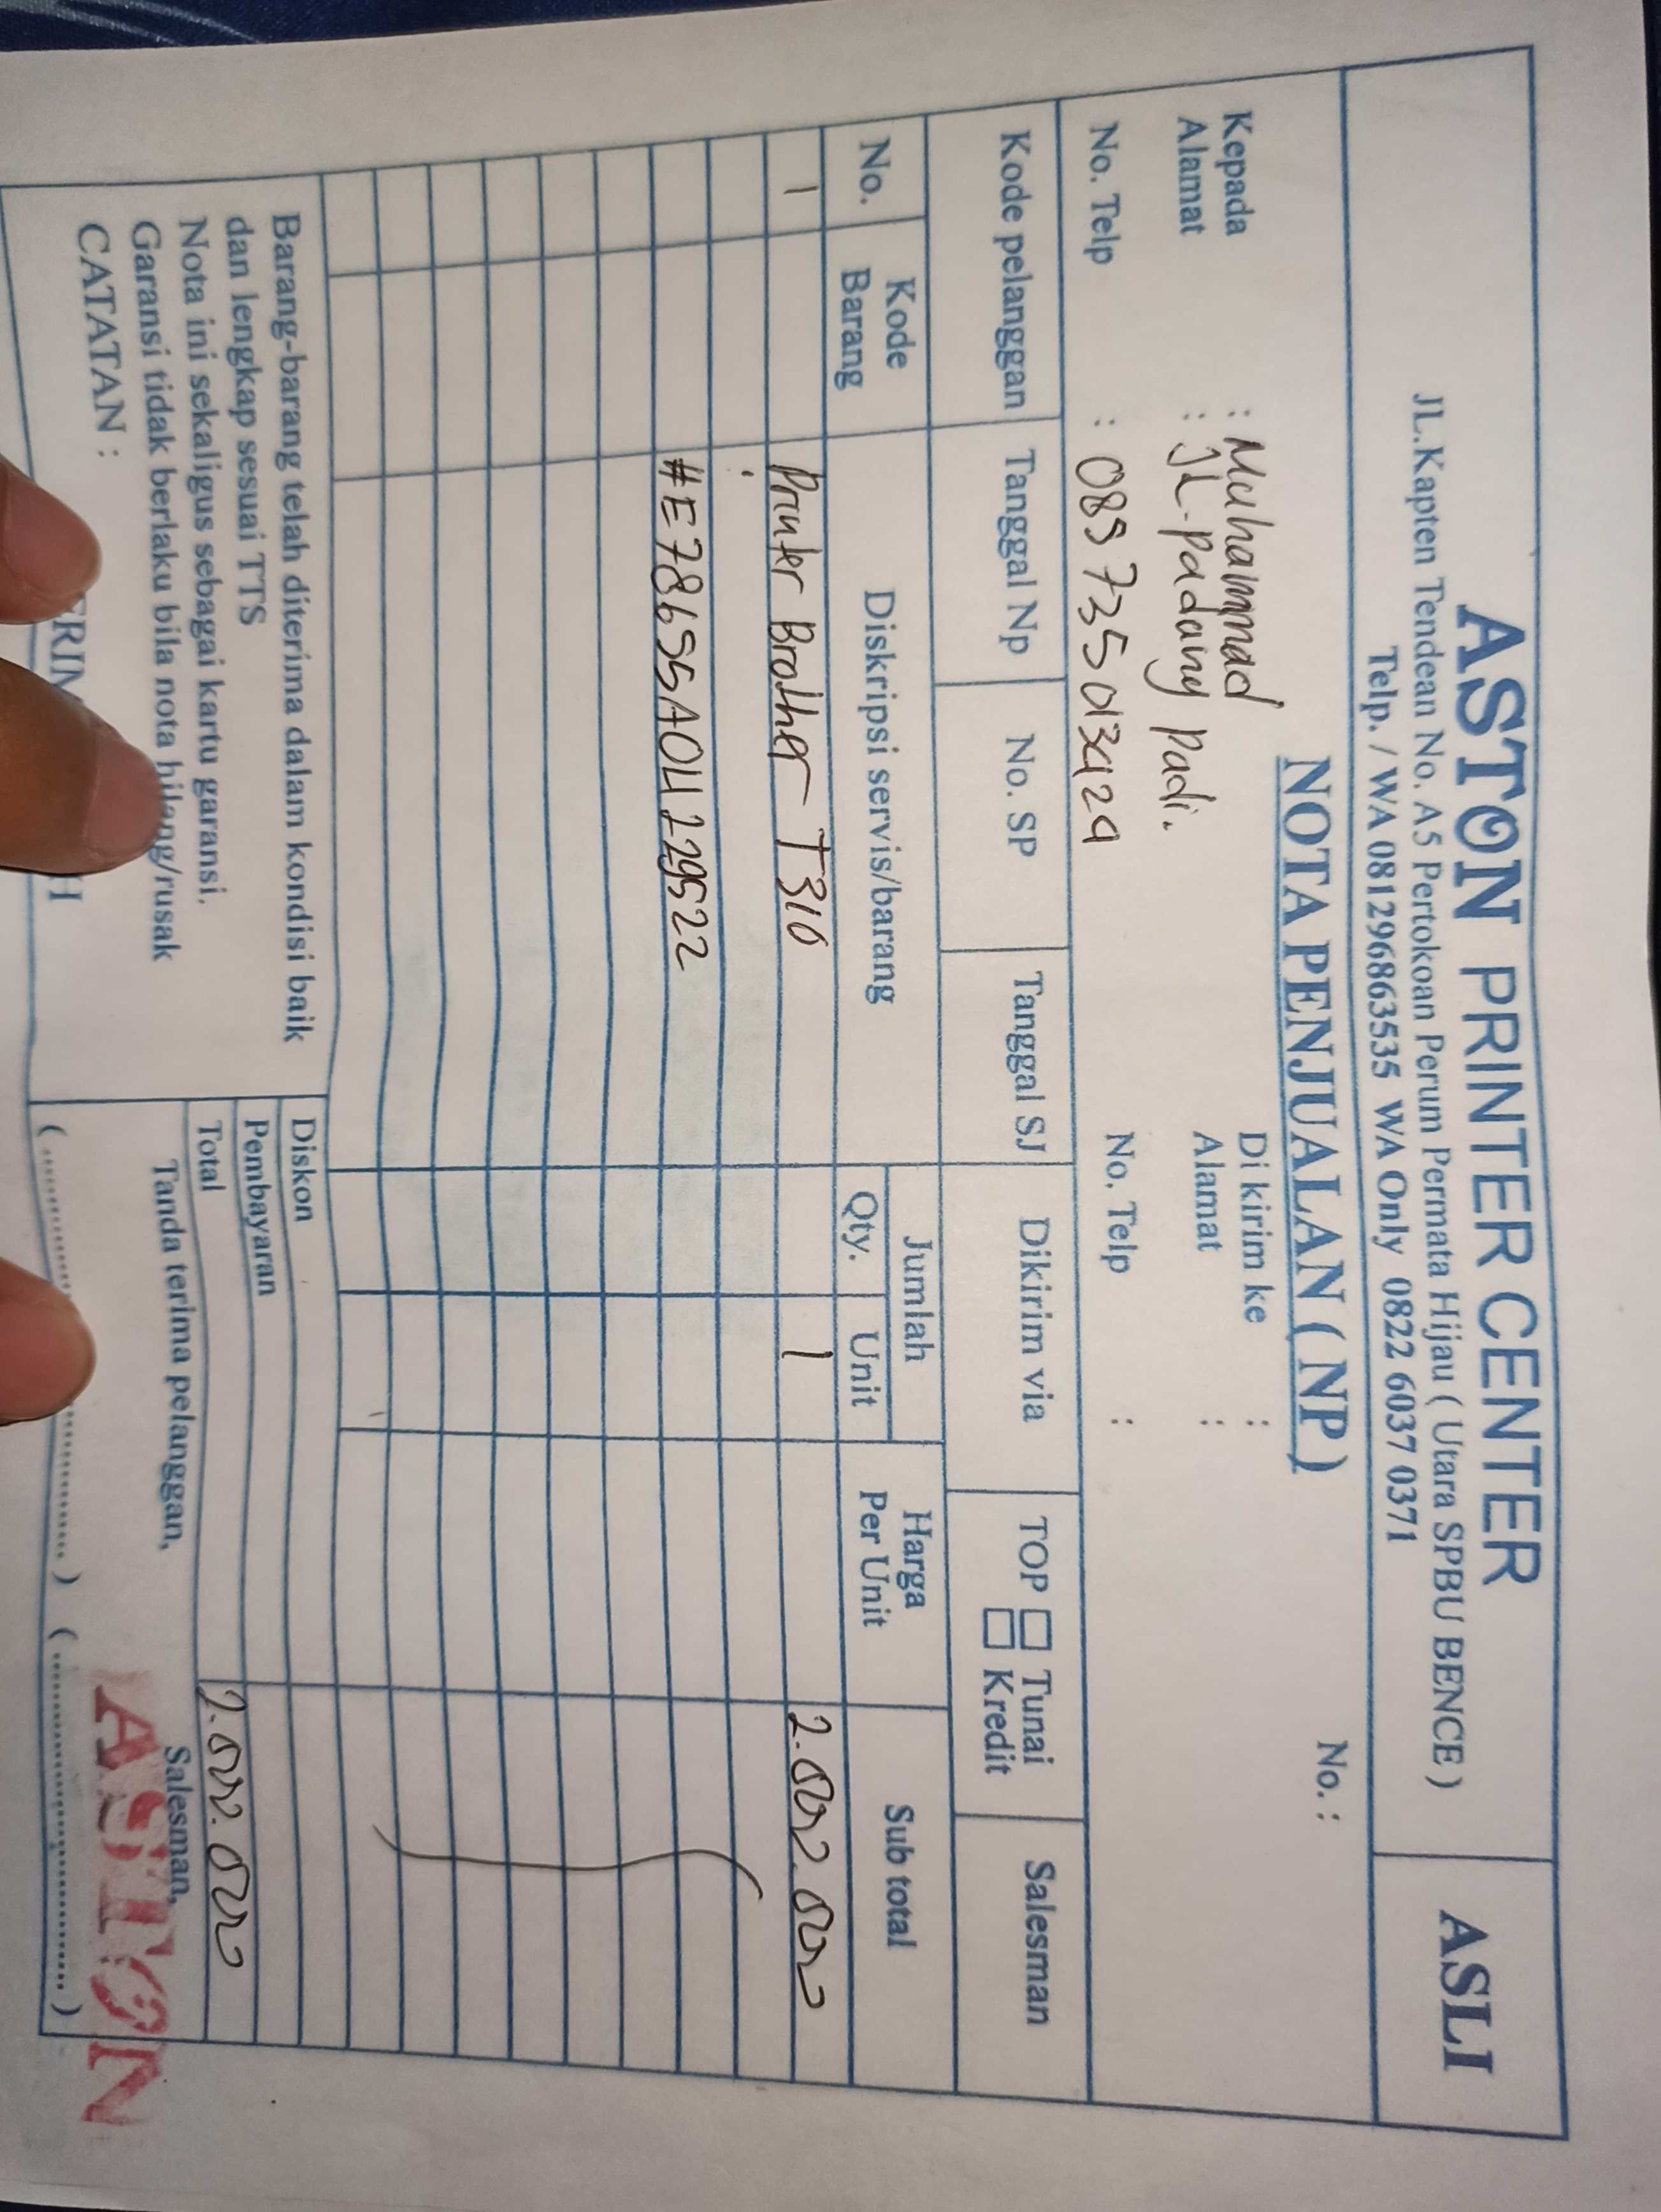 ASTON PRINTER CENTER
JL.Kapten Tendean No. A5 Pertokoan Perum Permata Hijau ( Utara SPBU BENCE )
Telp. / WA 081296863535 WA Only 0822 6037 0371
ASLI
NOTA PENJUALAN ( NP )
No. :
Kepada : Muhammad
Alamat : JL. Padang Padi.
No. Telp : 089735013424
Di kirim ke :
Alamat :
No. Telp :
Kode pelanggan Tanggal Np No. SP Tanggal SJ Dikirim via TOP Tunai Kredit Salesman
No. Kode Barang Diskripsi servis/barang Jumlah Qty. Unit Harga Per Unit Sub total
1 Printer Brother T310 1 2.000.000
#E78655A0U229522
Barang-barang telah diterima dalam kondisi baik
dan lengkap sesuai TTS
Nota ini sekaligus sebagai kartu garansi.
Garansi tidak berlaku bila nota hilang/rusak
CATATAN :
Diskon
Pembayaran
Total 2.000.000
Tanda terima pelanggan,
Salesman,
ASTON